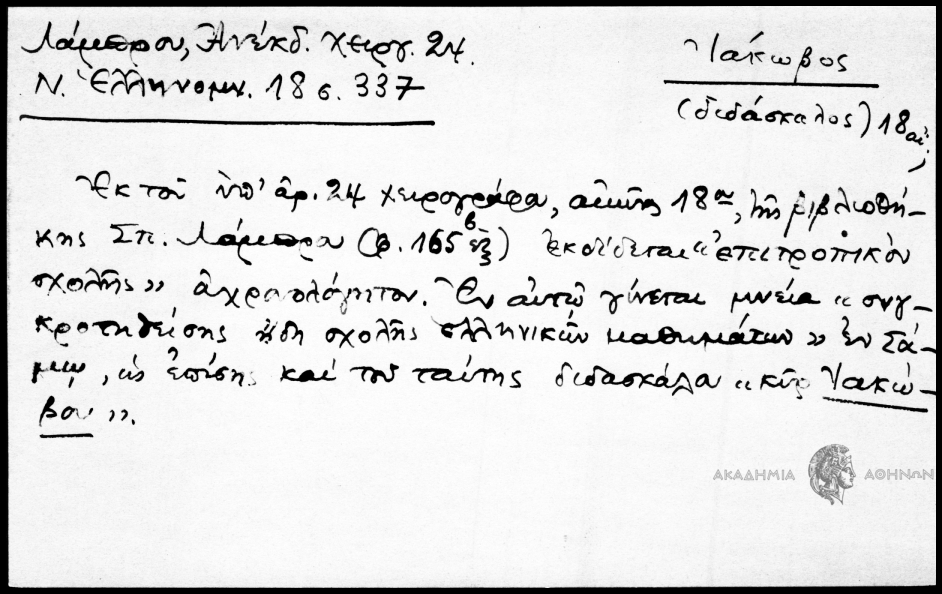 Λάμπρου, Ἀνέκδ. Χειργ. 24.
Ν. Ἑλληνομν. 18 σ. 337
Ἰάκωβος
(διδάσκαλος) 18 αἰ.
Ἐκ τοῦ ὑπ' ἀρ. 24 χειρογράφου, αἰῶνος 18ου, τῆς βιβλιοθή-
κης Σπ. Λάμπρου (φ. 165β ἑξ) ἐκδίδεται "ἐπιτροπικὸν
σχολῆς" ἀχρονολόγητον. Ἐν αὐτῷ γίνεται μνεία "συγ-
κροτηθείσης ἤδη σχολῆς ἑλληνικῶν μαθημάτων" ἐν Σά-
μῳ, ὡς ἐπίσης καὶ τοῦ ταύτης διδασκάλου "κὺρ Ἰακώ-
βου".
ΑΚΑΔΗΜΙΑ ΑΘΗΝΩΝ